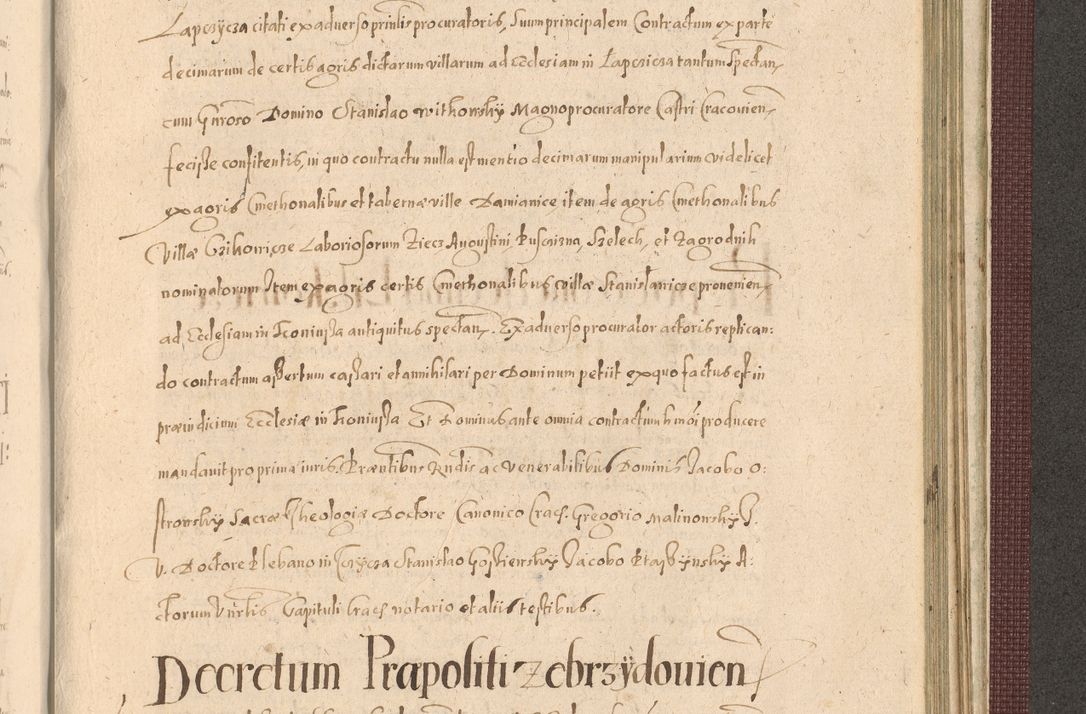 Lapczycza citati ex adverso prīnlis procuratoris, Suum principalem Contractum ex parte
decimarum de certis agris dictarum villarum ad Ecclesiam in Lapczicza tantum spectan,
cum Gn̄roso Domino Stanislao Withowsky Magnoprocuratore Castri Cracovien,
fecisse confitentis, in quo contractu nulla est mentio decimarum manipularium videlicet
ex agris Cmethonalibus et tabernæ ville Damianice item de agris Cmethonalibus
Villæ Czikowicze Laboriosorum Ziecz Augustini Pusczizna, Szelech, et Zagrodnik
nominatorum Item ex agris certis Cmethonalibus villæ Stanislawicze provenien,
ad Ecclesiam in Chroniussa antiquitus spectan,. Ex adverso procurator actoris replican:
do contractum assertum cassari et annihilari per Dominum petiit ex quo factus est in
præiudicium Ecclesiæ in Chroniussa Et Dominus ante omnia contractum hm̄oi producere
mandavit pro prima iuris. Præntibus Rndis ac Venerabilibus Dominis Jacobo O:
strowsky Sacræ Theologiæ Doctore Canonico Crac. Gregorio Malinowsky J.
V. Doctore Plebano in Sczycza Stanislao Gostiensky Jacobo Ktassynsky A:
ctorum Vn̄rlis Capituli Crac notario et aliis testibus.
Decretum Præpositi Zebrzydovien,